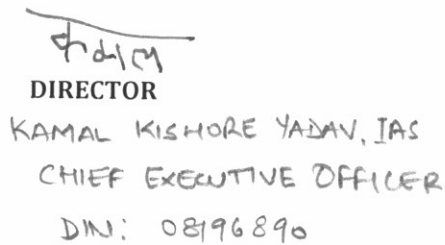 कमल
DIRECTOR
KAMAL KISHORE YADAV, IAS
CHIEF EXECUTIVE OFFICER
DIN: 08196890